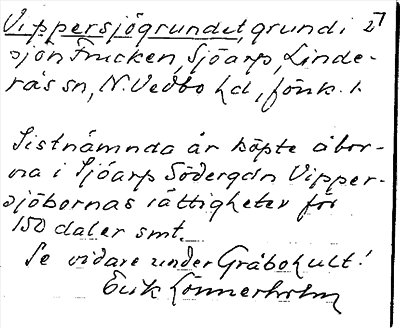 Vippersjögrundet, grund i 27
sjön Frucken, Sjöarp, Linde-
rås sn, N. Vedbo hd, fönk. 1.
Sistnämnda år köpte åbor-
na i Sjöarp Södergdn Vipper-
sjöbornas rättigheter för
150 daler smt.
Se vidare under Gråbohult!
Erik Lönnerholm